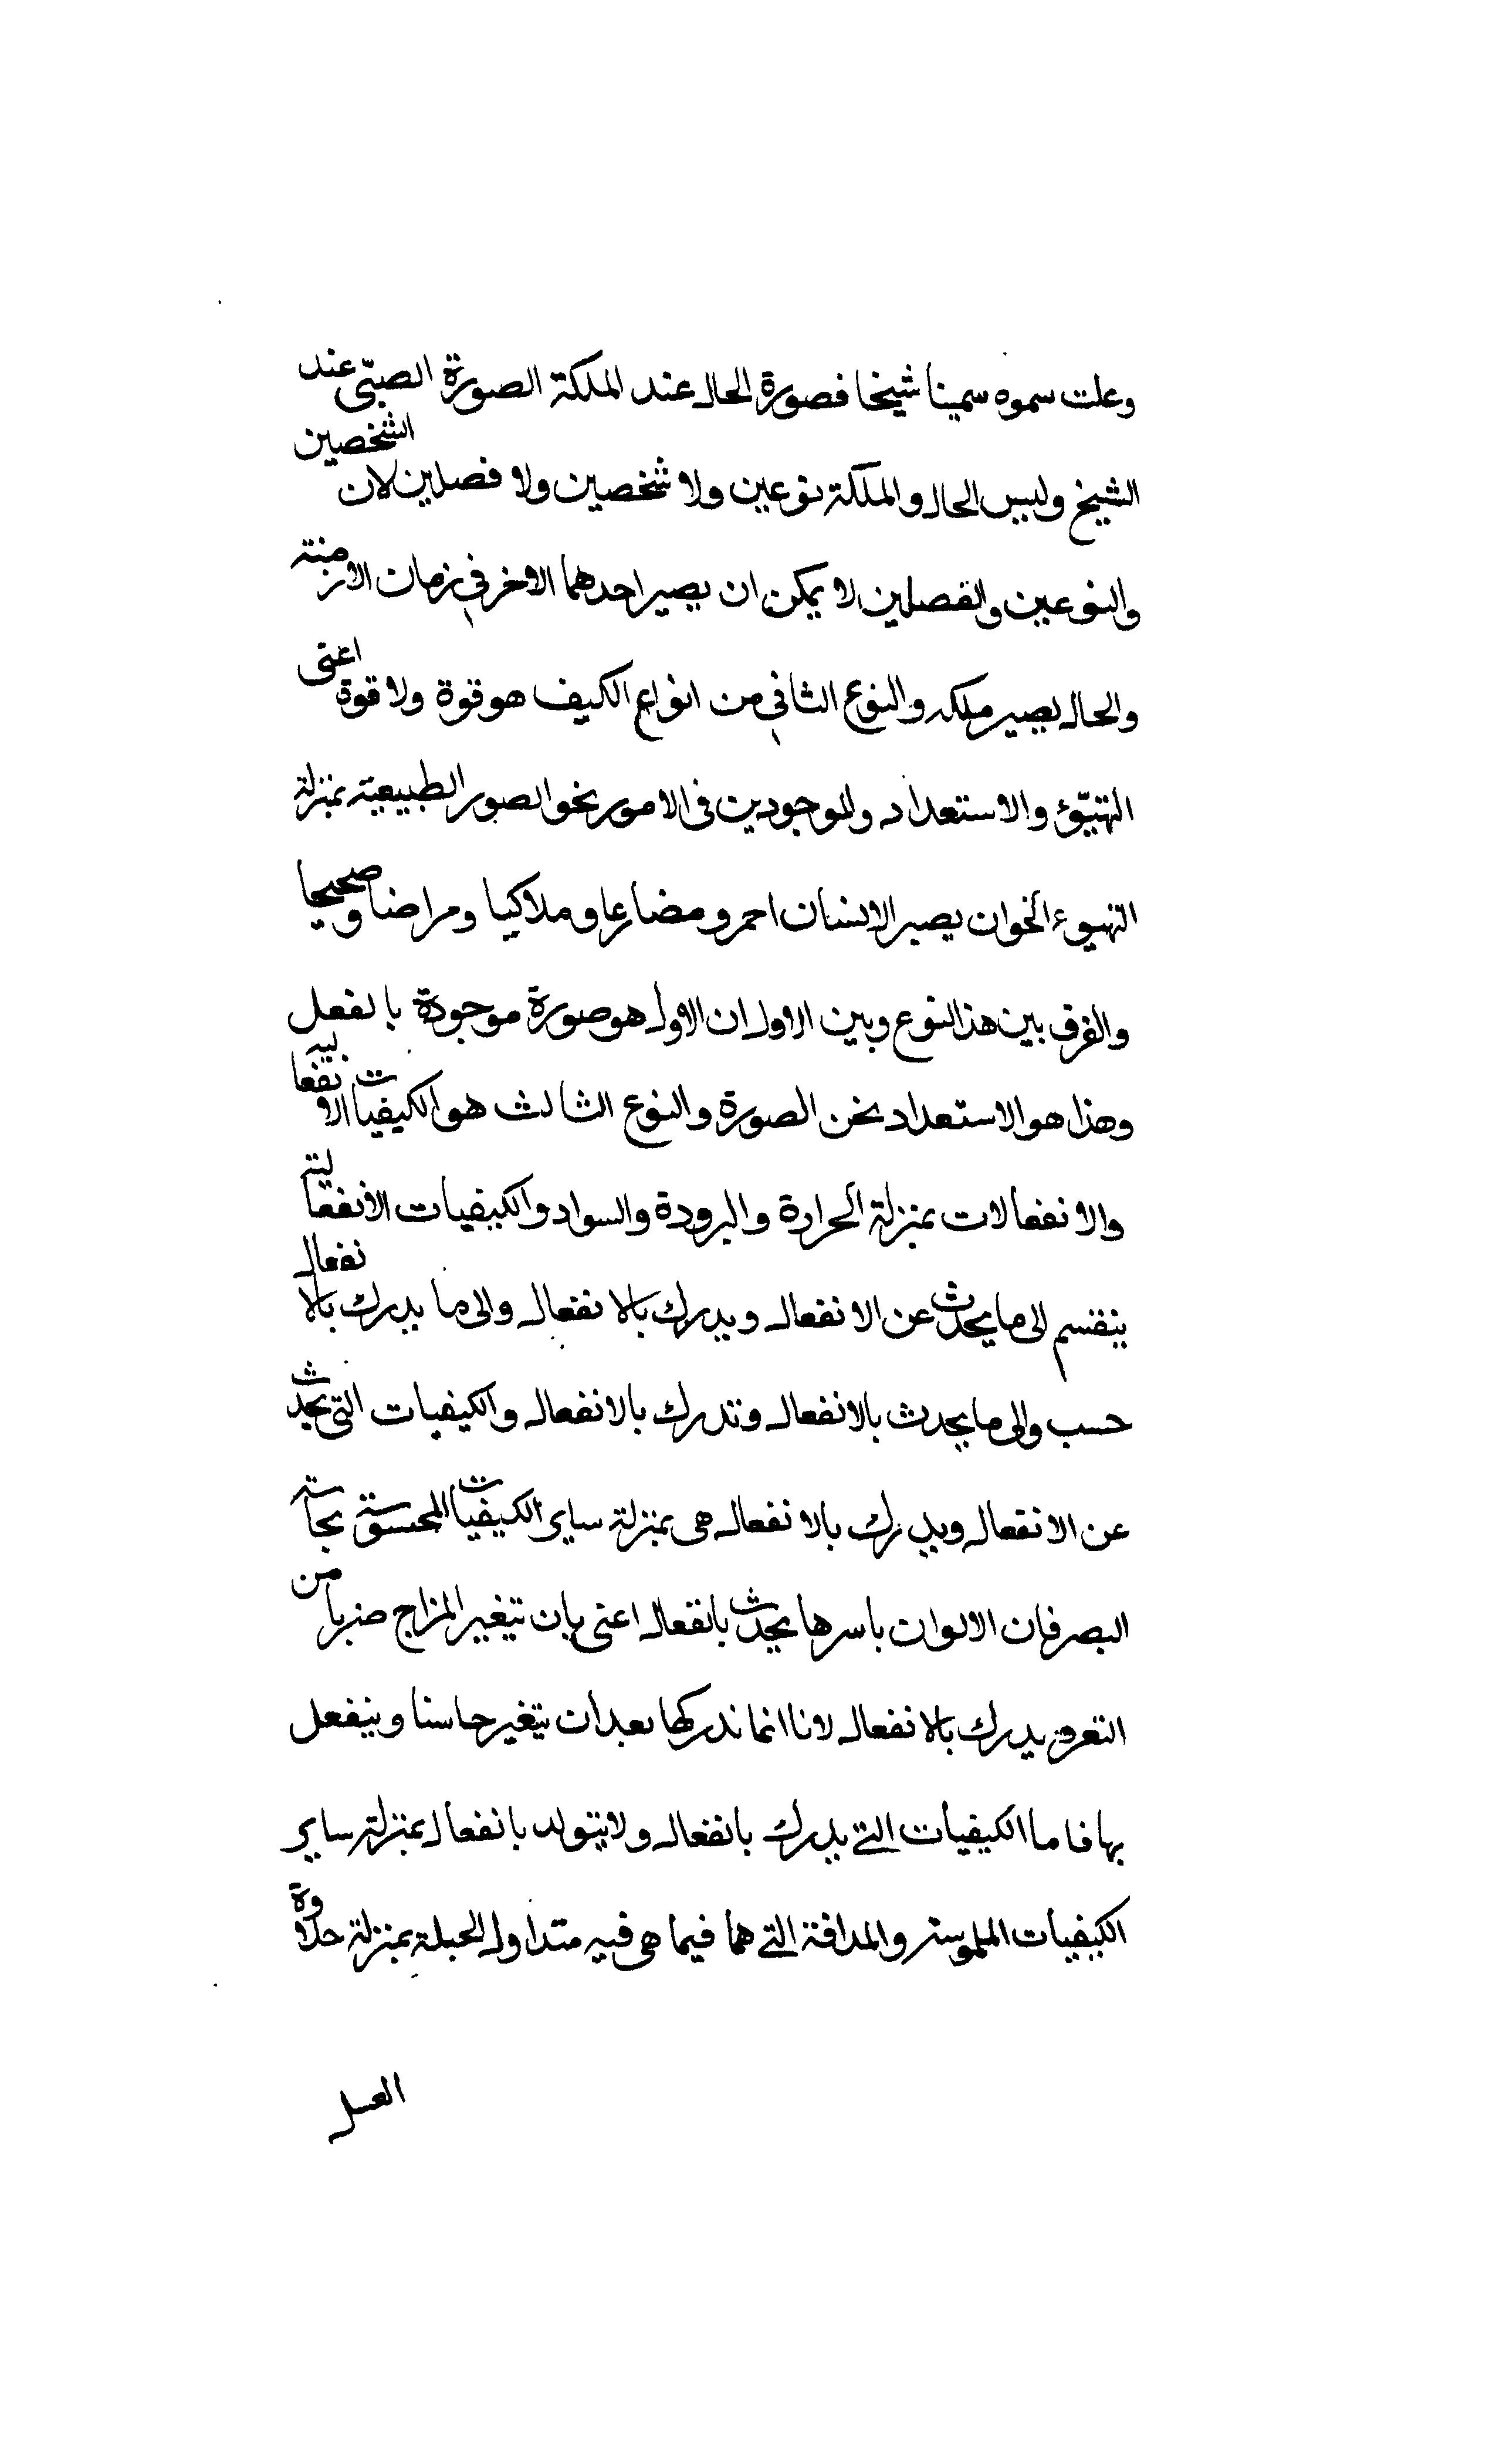 وعلت سموه سمينا شيخا فصورة الحال عند الملكة الصورة الصبّى عند
الشيخ وليس الحال والملكة نوعين ولا شخصين ولا فصلين لان الشخصين
والنوعين والفصلين لا يمكن ان يصير احدهما الاخر في زمان الازمنة
والحال يصير ملكه والنوع الثاني من انواع الكيف هو قوة ولا قوة اعنى
التهيّؤ والاستعداد والموجودين فى الامور نحو الصور الطبيعية بمنزلة
التهيوء نحو ان يصير الانسان احمر ومضارعا وملاكيا ومراضا وصحيحا
والفرق بين هذا النوع وبين الاول ان الاول هو صورة موجودة بالفعل
وهذا هو الاستعداد نحن الصورة والنوع الثالث هو الكيفيات الانفعاليه
والانفعالات بمنزلة الحرارة والبرودة والسواد والكيفيات الانفعالية
ينقسم الى ما يحدث عن الانفعال ويدرك بالانفعال والى ما يدرك بالانفعال
حسب والى ما يحدث بالانفعال وتدرك بالانفعال والكيفيات التى يحدث
عن الانفعال ويدرك بالانفعال هى بمنزلة ساير الكيفيات المحسوسة بحاسة
البصر فان الالوان باسرها يحدث بانفعال اعنى بان تتغير المزاج ضربا من
التعرف يدرك بالانفعال لانا انما ندركها بعد ان يتغير حاسنا وينفعل
بها فاما الكيفيات التے يدرك بانفعال ولا يتولد بانفعال بمنزلة ساير
الكيفيات الملموسة والمذاقة التے هما فيما هى فيه متداول الجبلة بمنزلة حلاوة
العسل